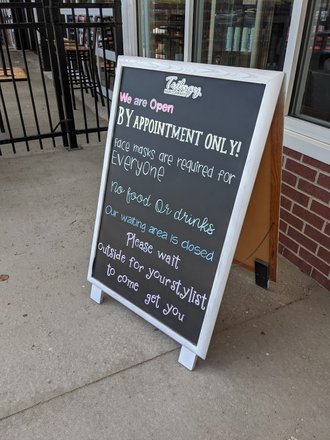 Trilogy
We are Open
BY APPOINTMENT ONLY!
Face masks are required for
Everyone
No food Or drinks
Our waiting area is closed
Please wait
outside for your stylist
to come get you